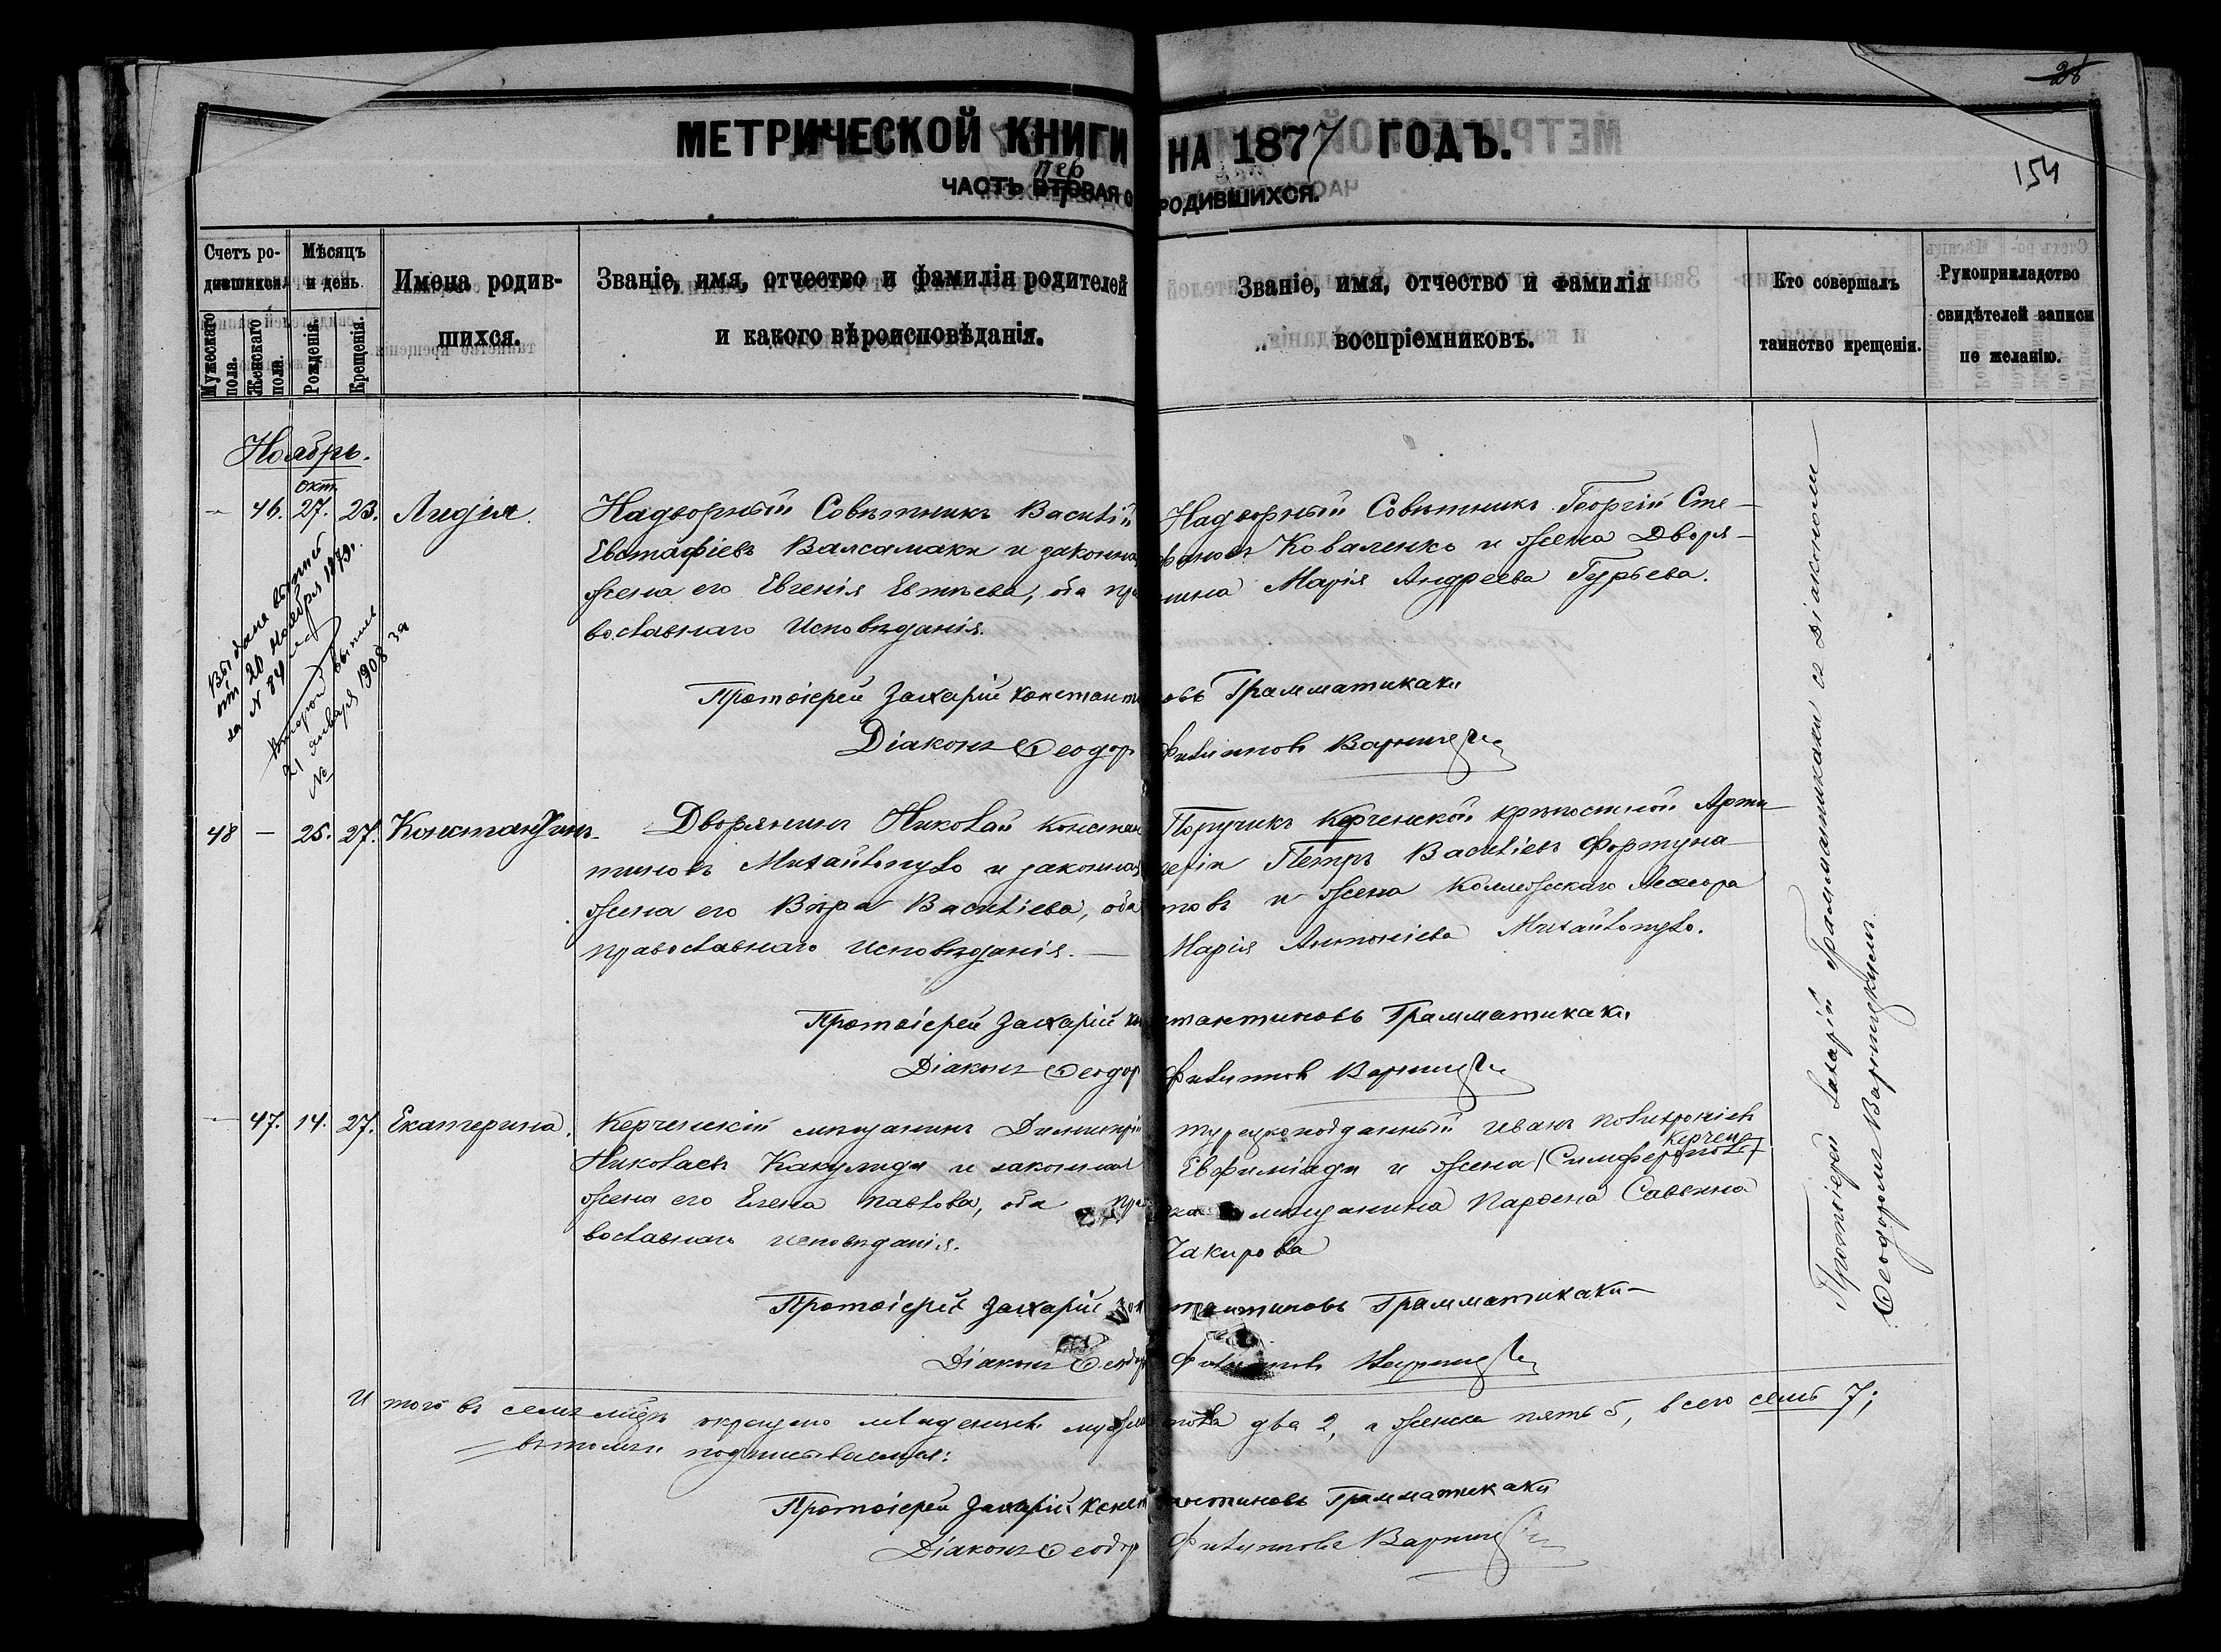 28
МЕТРИЧЕСКОЙ КНИГИ НА 1877 ГОДЪ.
154
пер
ЧАСТЬ ВТОРАЯ О РОДИВШИХСЯ.
Счетъ родившихся.
Мужескаго пола.
Женскаго пола.
Мѣсяцъ и день
Рожденія.
Крещенія.
Имена родившихся.
Званіе, имя, отчество и фамилія родителей
и какого вѣроисповѣданія.
Званіе, имя, отчество и фамилія
воспріемниковъ.
Кто совершалъ
таинство крещенія.
Рукоприкладство
свидѣтелей записи
по желанію.
Ноябрь.
окт.
— 46. 27. 23. Лидія.
Надворный Совѣтникъ Василій
Евстафіевъ Валсамаки и законная
жена его Евгенія Евтѣева, оба пра
вославнаго исповѣданія.
Надворный Совѣтникъ Георгій Сте-
фановъ Коваленко и жена Дворя-
нина Марія Андреева Гурьева.
Выдана выпись
отъ 20 ноября 1879 г.
за N 84
Второй выпись
21 января 1908 за
№
Протоіерей Захарій Константиновъ Грамматикаки
Діаконъ Ѳеодоръ Филипповъ
48 — 25. 27. Константинъ
Дворянинъ Николай Констан
тиновъ Михайлопуло и законная
жена его Вѣра Василіева, оба
православнаго исповѣданія. —
Поручикъ Керченской крѣпостной Арти-
леріи Петръ Василіевъ Фортуна-
товъ и жена Коллежскаго Асессора
Марія Антоніева Михайлопуло.
Протоіерей Захарій Константиновъ Грамматикаки
Діаконъ Ѳеодоръ Филипповъ
— 47. 14. 27. Екатерина.
Керченскій мѣщанинъ Димитрій
Николаевъ Какулиди и законная
жена его Елена Павлова, оба пра
вославнаго исповѣданія.
турецкоподданный Иванъ Полихроніевъ
Керченс
Евфиміади и жена Симферополь
ка мѣщанина Парѳена Саввина
Чакирова
Протоіерей Захарій Константиновъ Грамматикаки
Діаконъ Ѳеодоръ Филипповъ
Протоіерей Захарій Грамматикаки съ Діакономъ
Ѳеодоромъ Варницкимъ.
И того въ семъ мѣсяцѣ окрещено младенцевъ мужеска пола два 2, а женска пять 5, всего семь 7;
въ томъ и подписываемся:
Протоіерей Захарій Константиновъ Грамматикаки
Діаконъ Ѳеодоръ Филипповъ